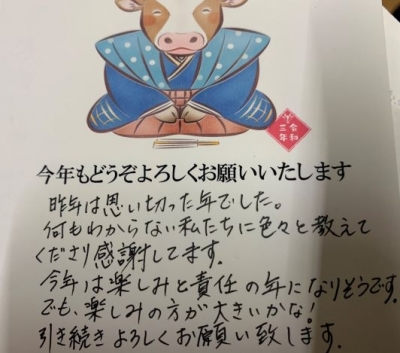 令和
三年
今年もどうぞよろしくお願いいたします
昨年は思い切った年でした。
何もわからない私たちに色々と教えて
くださり感謝してます。
今年は楽しみと責任の年になりそうです。
でも、楽しみの方が大きいかな!
引き続きよろしくお願い致します。